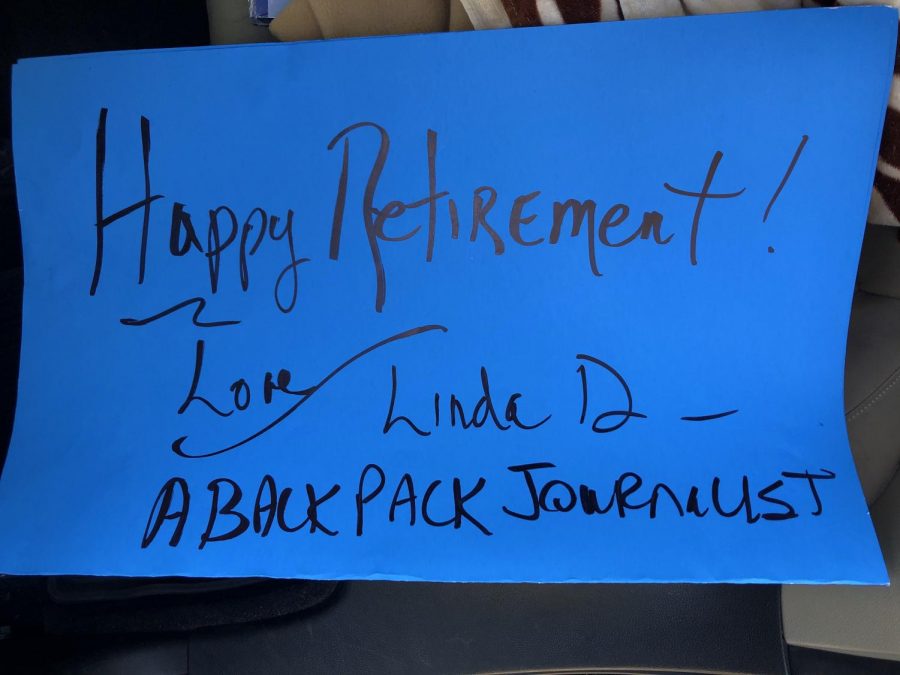 Happy Retirement!
Love Linda D -
A BACKPACK JOURNALIST